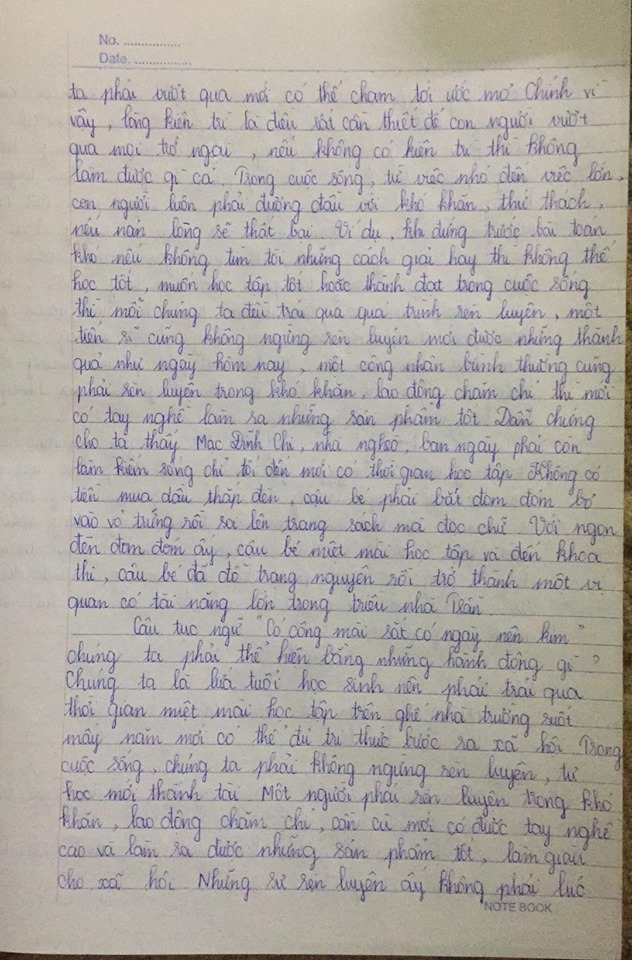 No. ................
Date. ................
ta phải vượt qua mới có thể chạm tới ước mơ Chính vì
vậy, lòng kiên trì là điều rất cần thiết để con người vượt
qua mọi trở ngại, nếu không có kiên trì thì không
làm được gì cả. Trong cuộc sống, từ việc nhỏ đến việc lớn,
con người luôn phải đương đầu với khó khăn, thử thách,
nếu nản lòng sẽ thất bại. Ví dụ, khi đứng trước bài toán
khó nếu không tìm tòi những cách giải hay thì không thể
học tốt, muốn học tập tốt hoặc thành đạt trong cuộc sống
thì mỗi chúng ta đều trải qua quá trình rèn luyện, một
tiến sĩ cũng không ngừng rèn luyện mới được những thành
quả như ngày hôm nay, một công nhân bình thường cũng
phải rèn luyện trong khó khăn, lao động chăm chỉ thì mới
có tay nghề làm ra những sản phẩm tốt. Dẫn chứng
cho ta thấy Mạc Đĩnh Chi, nhà nghèo, ban ngày phải còn
làm kiếm sống chỉ tối đến mới có thời gian học tập. Không có
tiền mua dầu thắp đèn, cậu bé phải bắt đom đóm bỏ
vào vỏ trứng rồi soi lên trang sách mà đọc chữ. Với ngọn
đèn đom đóm ấy, cậu bé miệt mài học tập và đến khoa
thi, cậu bé đã đỗ trạng nguyên rồi trở thành một vị
quan có tài năng lớn trong triều nhà Trần
Câu tục ngữ "Có công mài sắt có ngày nên kim"
chúng ta phải thể hiện bằng những hành động gì?
Chúng ta là lứa tuổi học sinh nên phải trải qua
thời gian miệt mài học tập trên ghế nhà trường suốt
mấy năm mới có thể đủ tri thức bước ra xã hội. Trong
cuộc sống, chúng ta phải không ngừng rèn luyện, tự
học mới thành tài. Một người phải rèn luyện trong khó
khăn, lao động chăm chỉ, cần cù mới có được tay nghề
cao và làm ra được những sản phẩm tốt, làm giàu
cho xã hội. Những sự rèn luyện ấy không phải lúc
NOTE BOOK